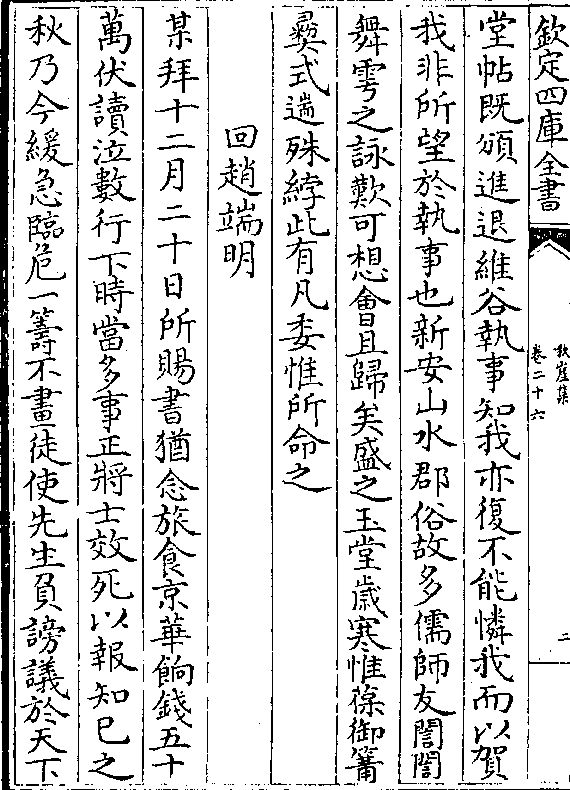 欽定四庫全書
秋崖集
卷二十六
二
堂帖既頒進退維谷執事知我亦復不能憐我而以賀
我非所望於執事也新安山水郡俗故多儒師友誾誾
舞雩之詠歎可想會且歸矣盛之玉堂歲寒惟葆御籥
彛式遄殊綍此有凡委惟所命之
回趙端明
某拜十二月二十日所賜書猶念旅食京華餉錢五十
萬伏讀泣數行下時當多事正將士效死以報知己之
秋乃今緩急臨危一籌不畫徒使先生負謗議於天下